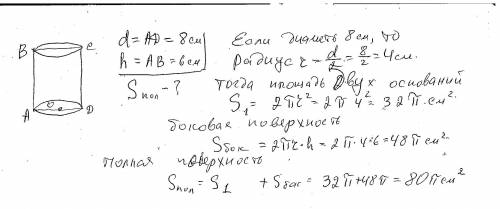 B C
A O D
d = AD = 8 см
h = AB = 6 см
Sпол - ?
Если диаметр 8 см, то
радиус r = d/2 = 8/2 = 4 см.
Тогда площадь двух оснований
S₁ = 2πr² = 2π 4² = 32π см²
боковая поверхность
Sбок = 2πr·h = 2π·4·6 = 48π см²
полная поверхность
Sпол = S₁ + Sбок = 32π + 48π = 80π см²